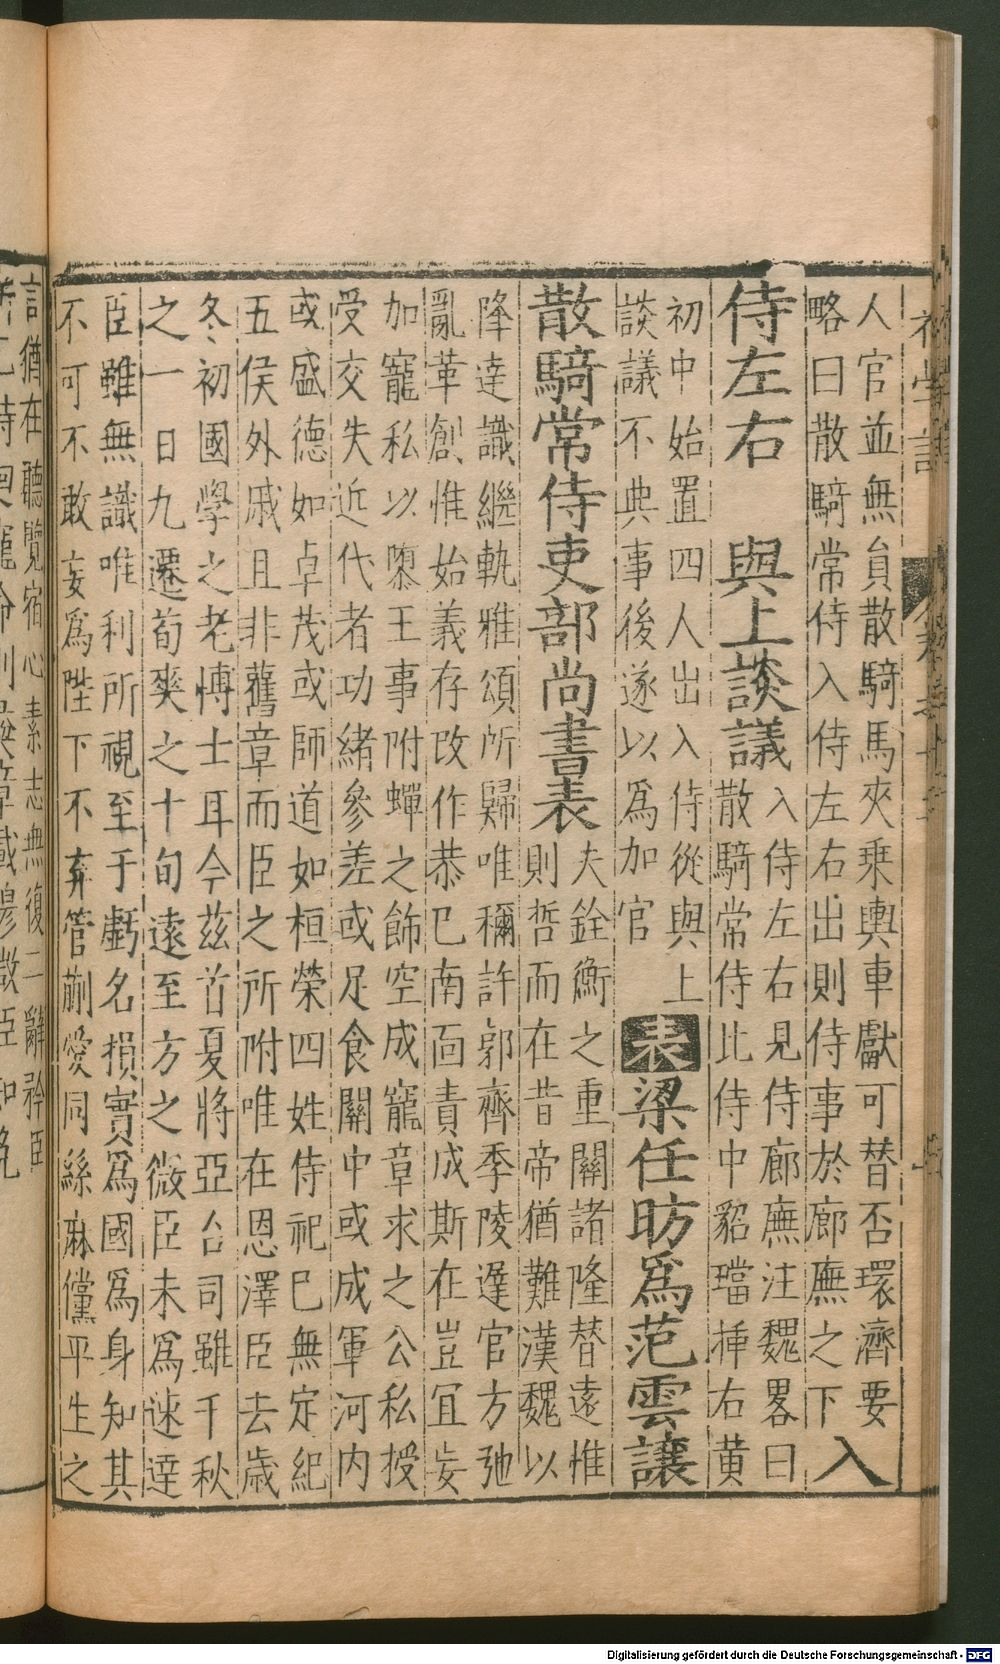 人官並無員散騎馬夾乗輿車獻可替否環濟要
略曰散騎常侍入侍左右出則侍事於廊廡之下
入
侍左右 與上談議
入侍左右見侍廊廡注魏畧曰
散騎常侍比侍中貂璫揷右黃
初中始置四人出入侍從與上
談議不典事後遂以爲加官
表梁任昉爲范雲讓
散騎常侍吏部尚書表
夫銓衡之重關諸隆替遠惟
則哲而在昔帝猶難漢魏以
降達識繼軌雅頌所歸唯稱許郭齊季陵遲官方弛
亂革創惟始義存改作恭巳南靣責成斯在豈宜妄
加寵私以隳王事附蟬之飾空成寵章求之公私授
受交失近代者功緒參差或足食關中或成軍河内
或盛德如卓茂或師道如桓榮四姓侍祀巳無定紀
五侯外戚且非舊章而臣之所附唯在恩澤臣去歲
冬初國學之老博士耳今茲首夏將亞台司雖千秋
之一日九遷荀爽之十旬遠至方之微臣未爲速達
臣雖無識唯利所視至于虧名損實爲國爲身知其
不可不敢妄爲陛下不弃管蒯愛同絲麻儻平生之
言猶在聽覽宿心素志無復二辭矜臣
Digitalisierung gefördert durch die Deutsche Forschungsgemeinschaft - DFG